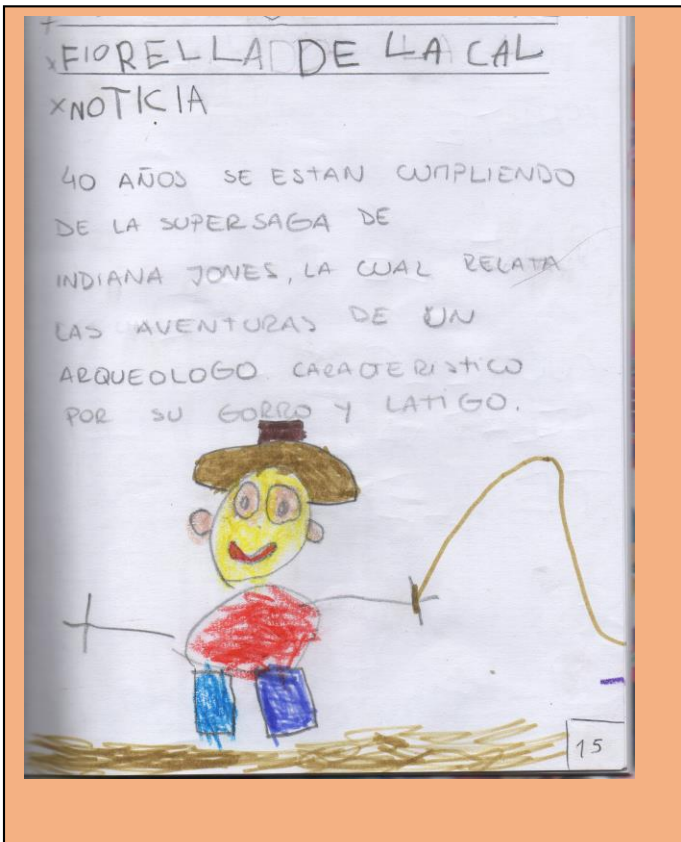 xFIORELLA DE LA CAL
xNOTICIA
40 AÑOS SE ESTAN CUMPLIENDO
DE LA SUPERSAGA DE
INDIANA JONES, LA CUAL RELATA
LAS AVENTURAS DE UN
ARQUEOLOGO CARACTERISTICO
POR SU GORRO Y LATIGO.
15